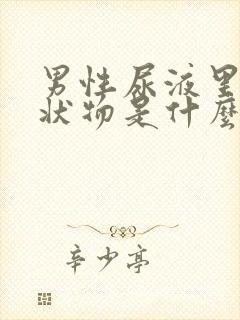 男性尿液里
状物是什麼
辛少亭